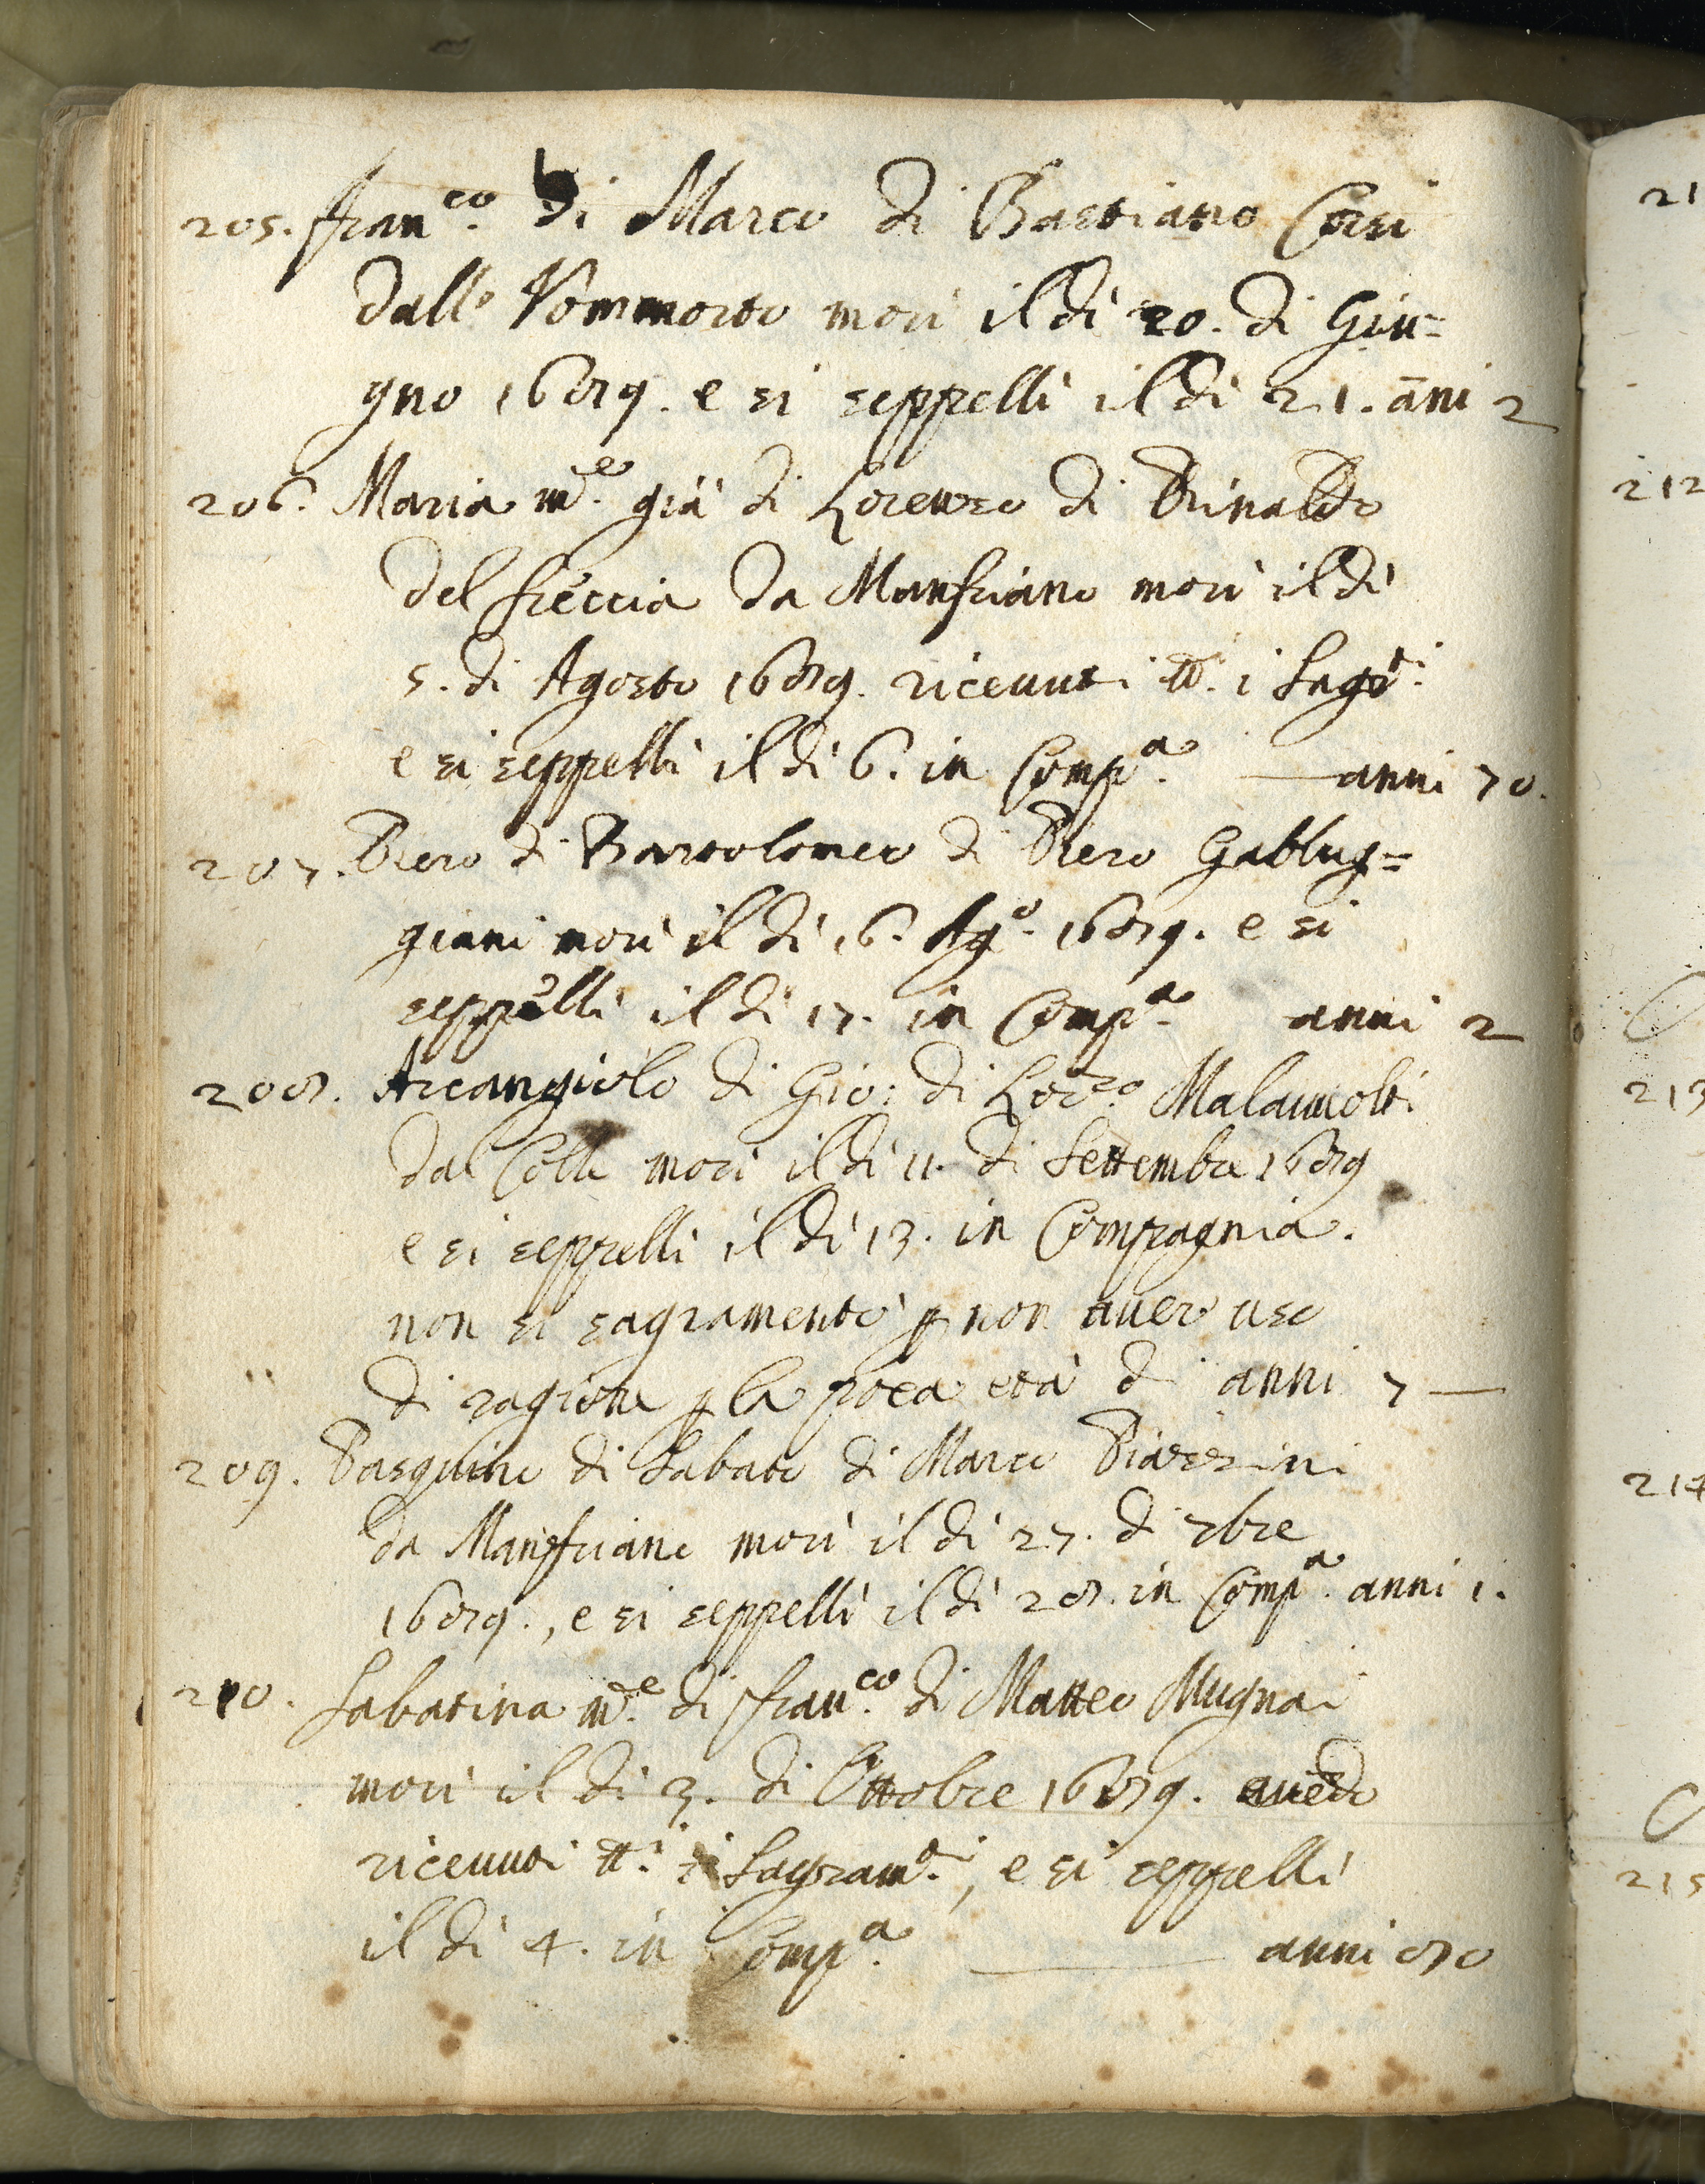 205. Fran.co di Marco di Bastiano Corsi
dall'Vommorto morì il dì 20. di Giu=
gno 1689. e si seppellì il dì 21. āni 2
206. Maria m.e già di Lorenzo di Rinaldo
del Freccia da Manfriano morì il dì
5. di Agosto 1689. riceuuti tt. i Sag.ti
e si seppellì il dì 6. in Comp.a anni 70.
207. Piero di Bartolomeo di Piero Gabbug=
giani morì il dì 16. Ag.o 1689. e si
seppellì il dì 17. in Comp.a anni 2
208. Arcangiolo di Gio: di Lor.zo Malauolti
dal Colle morì il dì 11. di Settembre 1689
e si seppellì il dì 13. in Compagnia.
non si sagramentò p non auer uso
di ragione p la poca età di anni 7
209. Pasquino di Sabato di Marco Piazzini
da Manfriano morì il dì 27. di 7bre
1689., e si seppellì il dì 28. in Comp.a anni 1.
210. Sabatina m.e di Fran.co di Matteo Mugnai
morì il dì 3. di Ottobre 1689. auēdo
riceuuti tt.i i Sagram.ti, e si seppellì
il dì 4. in Comp.a anni 80
21
212
213
214
215